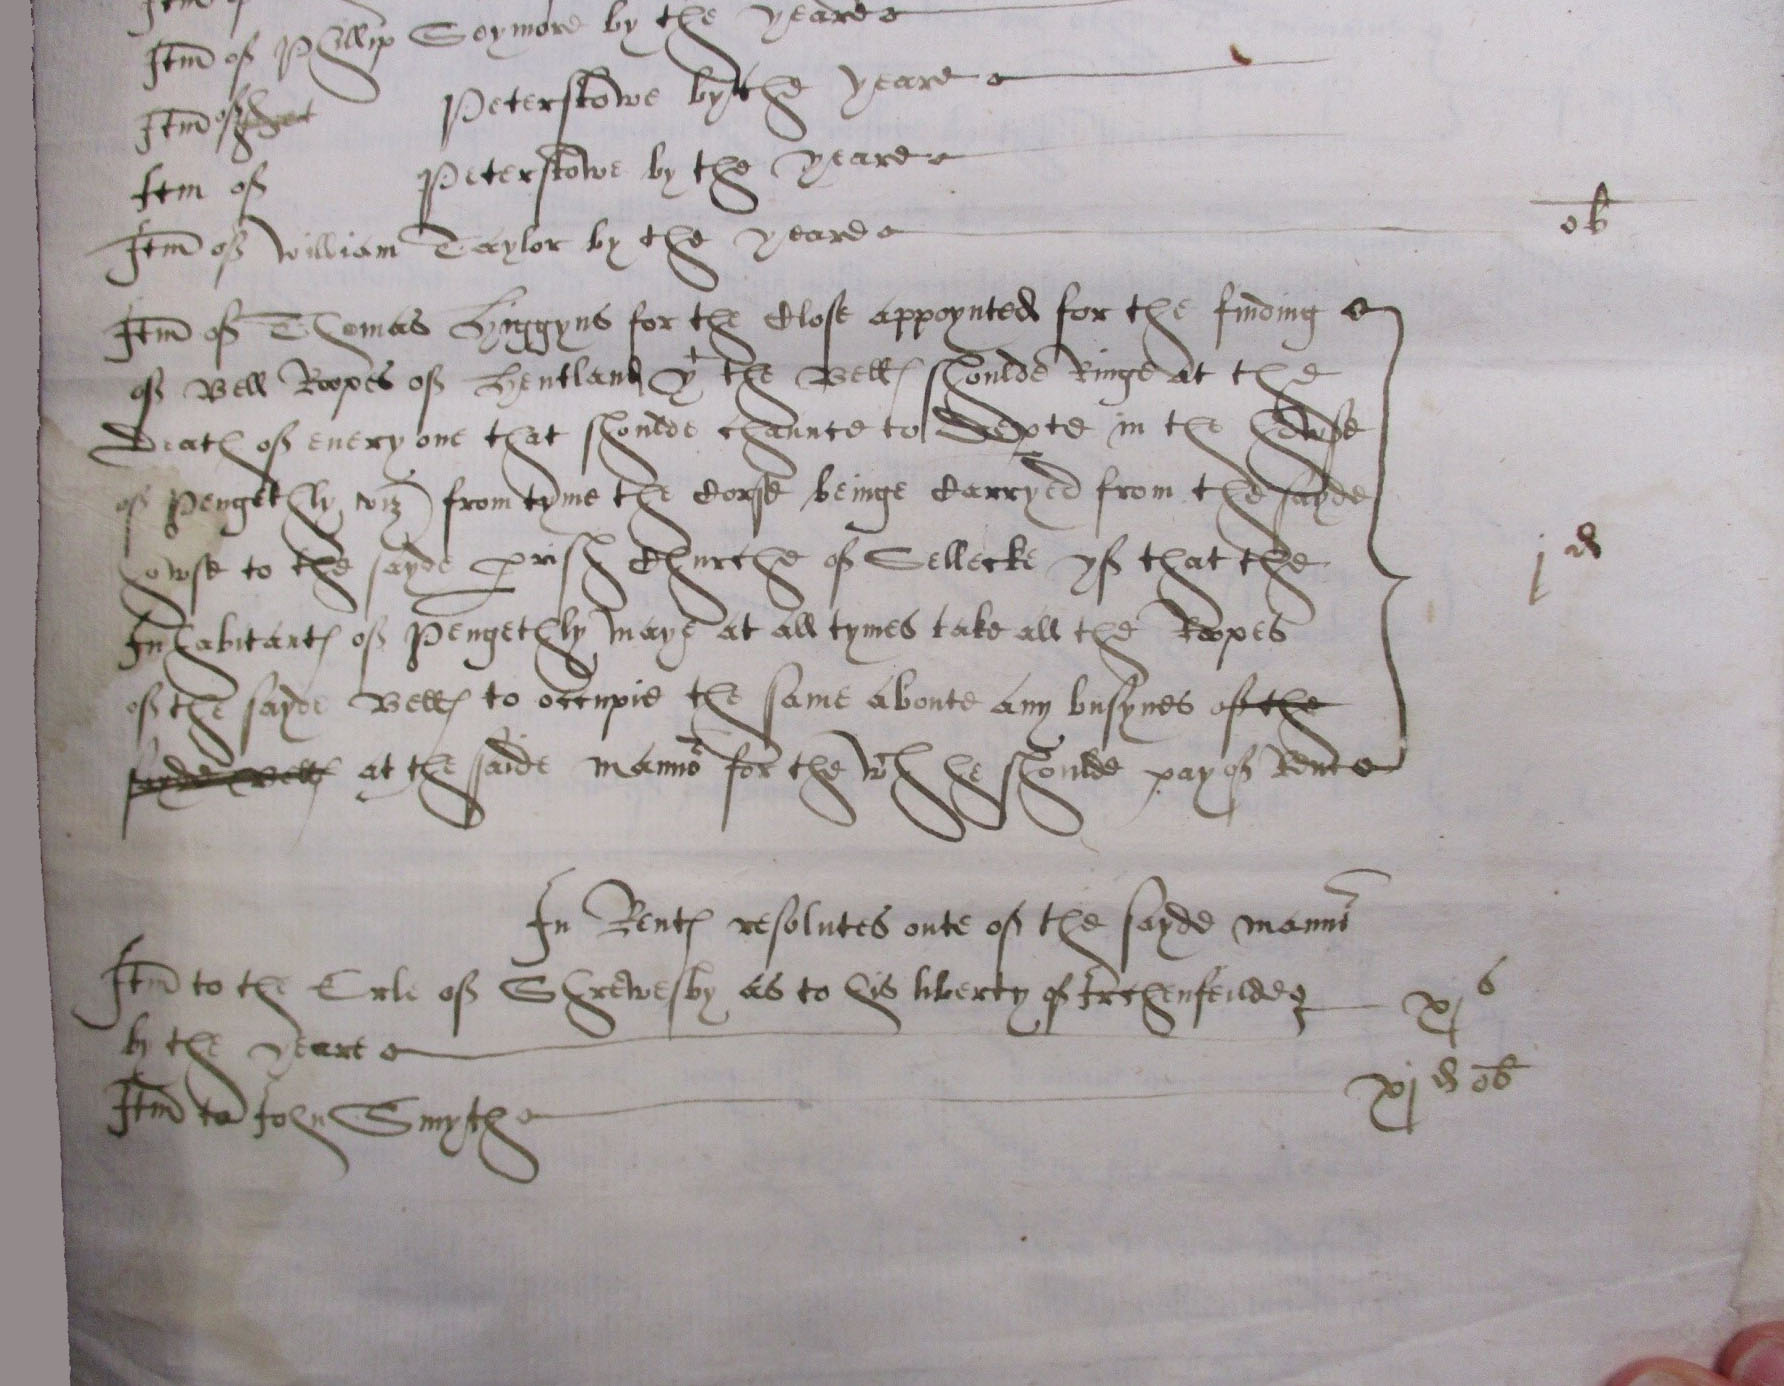 Itm of Phillip Seymore by the yeare
Itm of Peterstowe by the yeare
Itm of Peterstowe by the yeare
Itm of William Taylor by the yeare ob
Itm of Thomas Hyggyns for the Close appoynted for the finding
of Bell Roopes of Hentland yt the Belles shoulde Ringe at the
Death of euery one that shoulde chaunce to depte in the howse
of Pengethly viz from tyme the Corse beinge Carryed from the sayde
howse to the sayde prish Churche of Sellecke yf that the jd
Inhabitantes of Pengethly maye at all tymes take all the Roopes
of the sayde Belles to occupie the same aboute any busynes of the
sayde Belles at the saide mannor for the wch he shoulde pay of Rent
In Rentes resolutes oute of the sayde mannor
Itm to the Erle of Shrewesby as to his liberty of Irchenfeilde xjs
by the yeare
Itm to John Smythe xjd ob